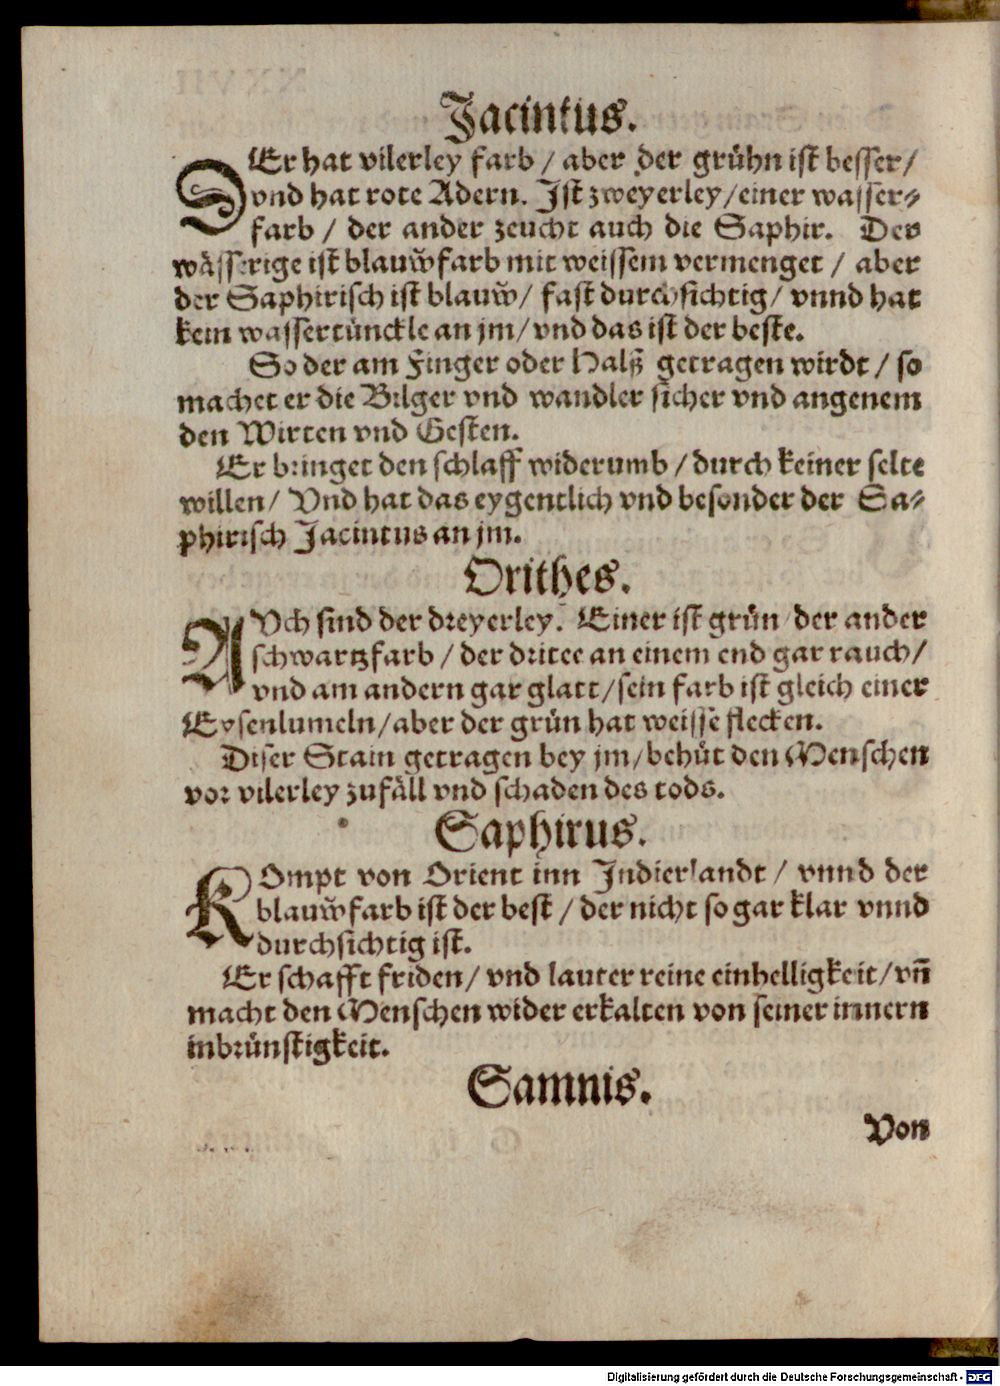 Jacintus.
DEr hat vilerley farb / aber der grühn ist besser /
vnd hat rote Adern. Ist zweyerley / einer wasser-
farb / der ander zeucht auch die Saphir. Der
wässerige ist blauw̃farb mit weissem vermenget / aber
der Saphirisch ist blauw̃ / fast durchsichtig / vnnd hat
kein wassertünckle an jm / vnd das ist der beste.
So der am Finger oder Halß getragen wirdt / so
machet er die Bilger vnd wandler sicher vnd angenem
den Wirten vnd Gesten.
Er bringet den schlaff widerumb / durch keiner selte
willen / Vnd hat das eygentlich vnd besonder der Sa-
phirisch Jacintus an jm.
Orithes.
AVch sind der dreyerley. Einer ist grün / der ander
schwartzfarb / der dritte an einem end gar rauch /
vnd am andern gar glatt / sein farb ist gleich einer
Eysenlumeln / aber der grün hat weisse flecken.
Diser Stain getragen bey jm / behüt den Menschen
vor vilerley zufäll vnd schaden des tods.
Saphirus.
KOmpt von Orient inn Indierlandt / vnnd der
blauw̃farb ist der best / der nicht so gar klar vnnd
durchsichtig ist.
Er schafft friden / vnd lauter reine einhelligkeit / vñ
macht den Menschen wider erkalten von seiner innern
inbrünstigkeit.
Samnis.
Von
Digitalisierung gefördert durch die Deutsche Forschungsgemeinschaft - DFG